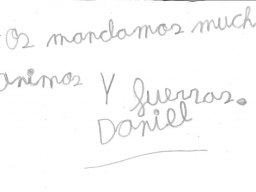 Os mandamos much
animos Y fuerzas.
Daniel